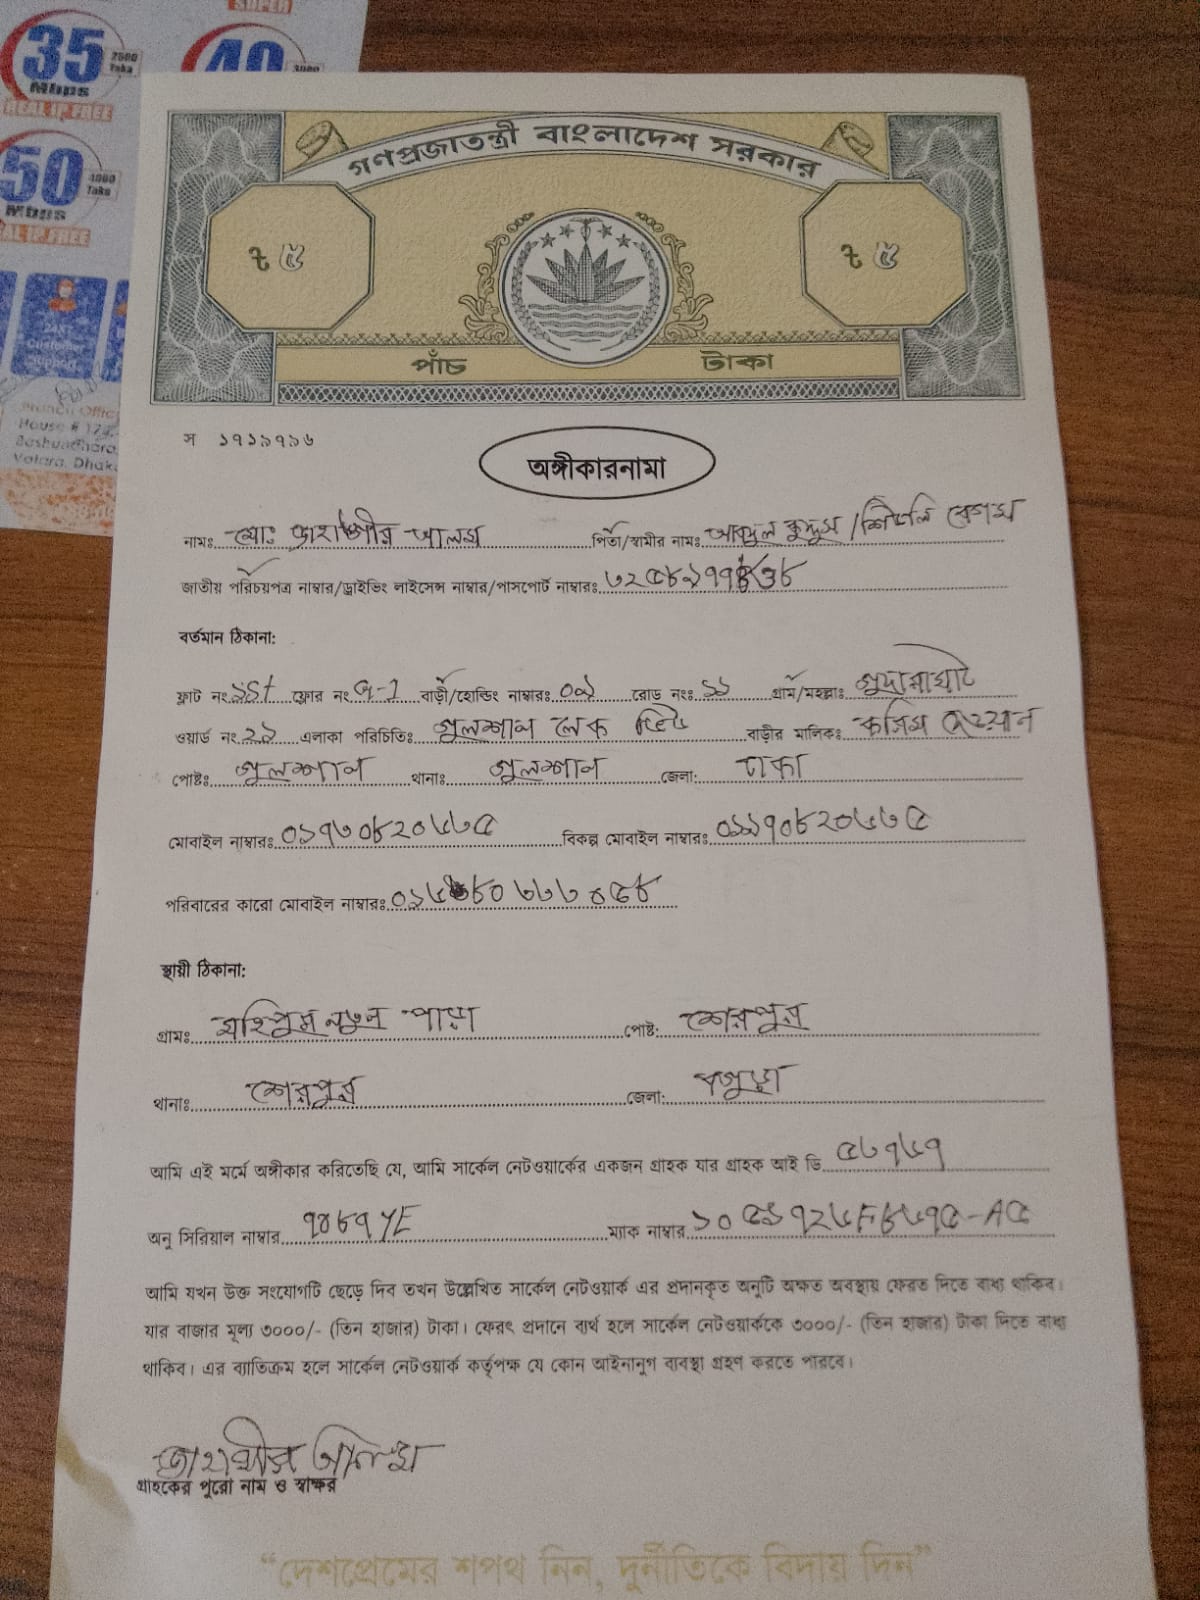 SUPER
35 2500 Taka
Mbps
REAL IP FREE
40 3000
50 4000 Taka
Mbps
REAL IP FREE
24X7
Customer
Support
Branch Office
House # 174,
Bashundhara,
Vatara, Dhaka
গণপ্রজাতন্ত্রী বাংলাদেশ সরকার
৳ ৫ ৳ ৫
পাঁচ টাকা
স ১৭১৯৭৯৬
অঙ্গীকারনামা
নামঃ মোঃ জাহাঙ্গীর আলম পিতা/স্বামীর নামঃ আবদুল কুদ্দুস / শিউলি বেগম
জাতীয় পরিচয়পত্র নাম্বার/ড্রাইভিং লাইসেন্স নাম্বার/পাসপোর্ট নাম্বারঃ
বর্তমান ঠিকানা:
ফ্লাট নং 1st ফ্লোর নং বাড়ী/হোল্ডিং নাম্বারঃ ০৯ রোড নংঃ ১১ গ্রাম/মহল্লাঃ গুদারাঘাট
ওয়ার্ড নং ২১ এলাকা পরিচিতিঃ গুলশান লেক ভিউ বাড়ীর মালিকঃ
পোষ্টঃ গুলশান থানাঃ গুলশান জেলা: ঢাকা
মোবাইল নাম্বারঃ ০১৭৩০৮২০৬৩৫ বিকল্প মোবাইল নাম্বারঃ ০১৯৭০৮২০৬৩৫
পরিবারের কারো মোবাইল নাম্বারঃ
স্থায়ী ঠিকানা:
গ্রামঃ নতুন পাড়া পোষ্ট: শেরপুর
থানাঃ শেরপুর জেলা: বগুড়া
আমি এই মর্মে অঙ্গীকার করিতেছি যে, আমি সার্কেল নেটওয়ার্কের একজন গ্রাহক যার গ্রাহক আই ডি ৫৬৭৬৭
অনু সিরিয়াল নাম্বার ৭৪৮৭YE ম্যাক নাম্বার
আমি যখন উক্ত সংযোগটি ছেড়ে দিব তখন উল্লেখিত সার্কেল নেটওয়ার্ক এর প্রদানকৃত অনুটি অক্ষত অবস্থায় ফেরত দিতে বাধ্য থাকিব।
যার বাজার মূল্য ৩০০০/- (তিন হাজার) টাকা। ফেরৎ প্রদানে ব্যর্থ হলে সার্কেল নেটওয়ার্ককে ৩০০০/- (তিন হাজার) টাকা দিতে বাধ্য
থাকিব। এর ব্যাতিক্রম হলে সার্কেল নেটওয়ার্ক কর্তৃপক্ষ যে কোন আইনানুগ ব্যবস্থা গ্রহণ করতে পারবে।
জাহাঙ্গীর আলম
গ্রাহকের পুরো নাম ও স্বাক্ষর
“দেশপ্রেমের শপথ নিন, দুর্নীতিকে বিদায় দিন”